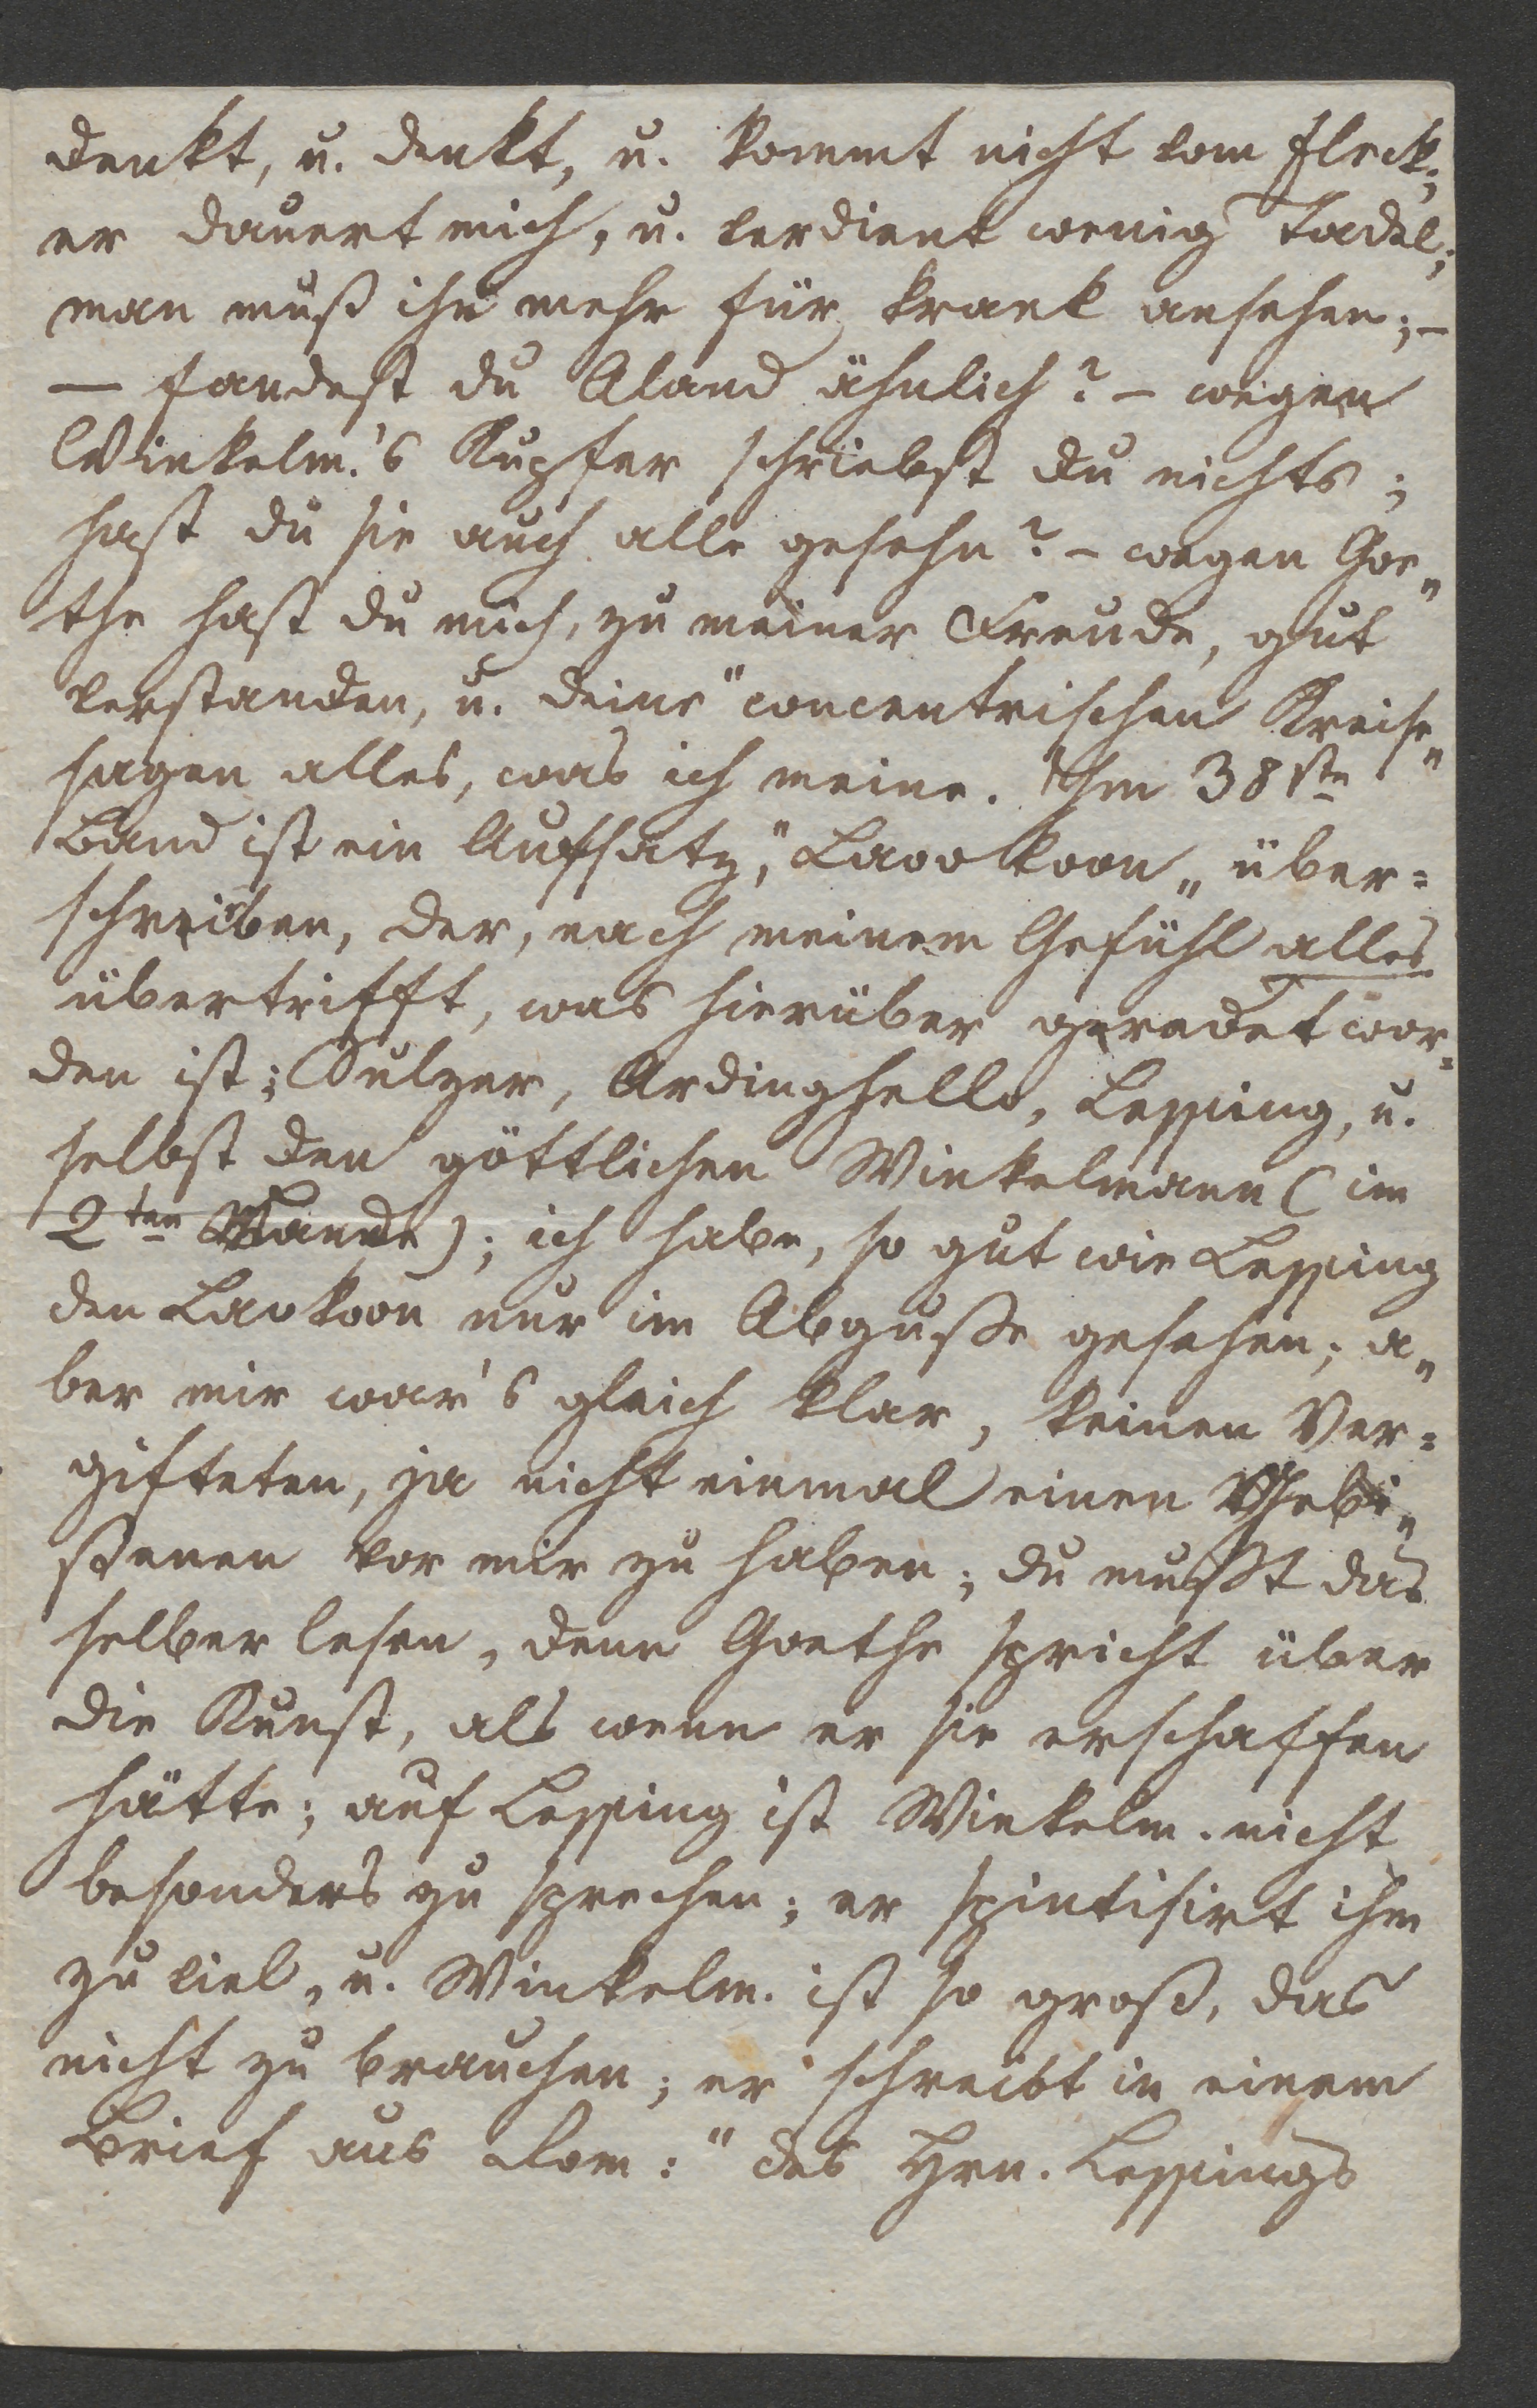 denkt, u. denkt, u. kommt nicht vom Fleck;
er dauert mich, u. verdient wenig Tadel;
man muß ihn mehr für krank ansehen; –
– fandest du Aland ähnlich? – wegen
Winkelm.'s Kupfer schriebst du nichts;
hast du sie auch alle gesehn? – wegen Goe„
the hast du mich, zu meiner Freude, gut
verstanden, u. deine "concentrischen Kreise„
sagen alles, was ich meine. Im 38ste
Band ist ein Aufsatz, "Laookoon„ über=
schreiben, der, nach meinem Gefühl alles
übertrifft, was hierüber geredet wor=
den ist; Sulzer, Ardinghello, Lessing, u.
selbst den göttlichen Winkelmann (im
2ten Bande); ich habe, so gut wie Lessing
den Laokoon nur im Abguße gesehen; a„
ber mir war's gleich klar, keinen Ver=
gifteten, ja nicht einmal einen Gebi„
ßenen vor mir zu haben; du mußt das
selber lesen, denn Goethe spricht über
die Kunst, als wenn er sie erschaffen
hätte; auf Lessing ist Winkelm. nicht
besonders zu sprechen; er spintisirt ihm
zu viel, u. Winkelm. ist so groß, das
nicht zu brauchen; er schreibt in einem
Brief aus Rom: "des Hrn. Lessings